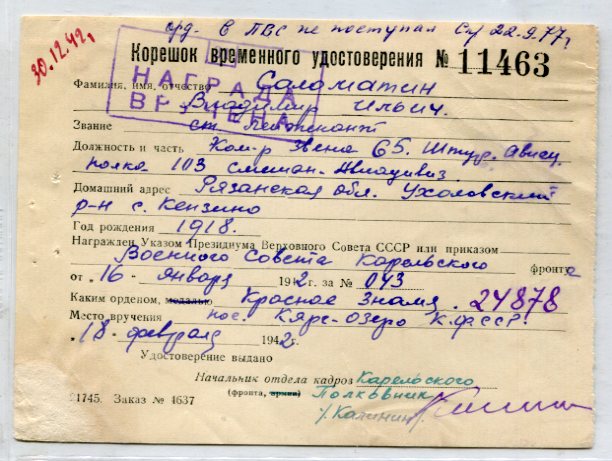 орд. в ПВС не поступал 22.9.77г
30.12.42г
Корешок временного удостоверения № 11463
НАГРАДА
ВРУЧЕНА
Фамилия, имя, отчество Саломатин
Владимир Ильич.
Звание ст. лейтенант
Должность и часть Ком-р звена 65. Штур. Авиац.
полка 103 смешан. Авиадивиз.
Домашний адрес Рязанская обл. Ухоловский
р-н с. Кензино
Год рождения 1918.
Награжден Указом Президиума Верховного Совета СССР или приказом
Военного Совета Карельского фронта
от 16 - января 1942г. за № 043
Каким орденом, медалью Красное Знамя. 24878
Место вручения пос. Кярс-озеро К.ФССР.
18 - февраля 1942г.
Удостоверение выдано
Начальник отдела кадров Карельского
(фронта, армии) Полковник
/. Калинин/
1745. Заказ № 4637